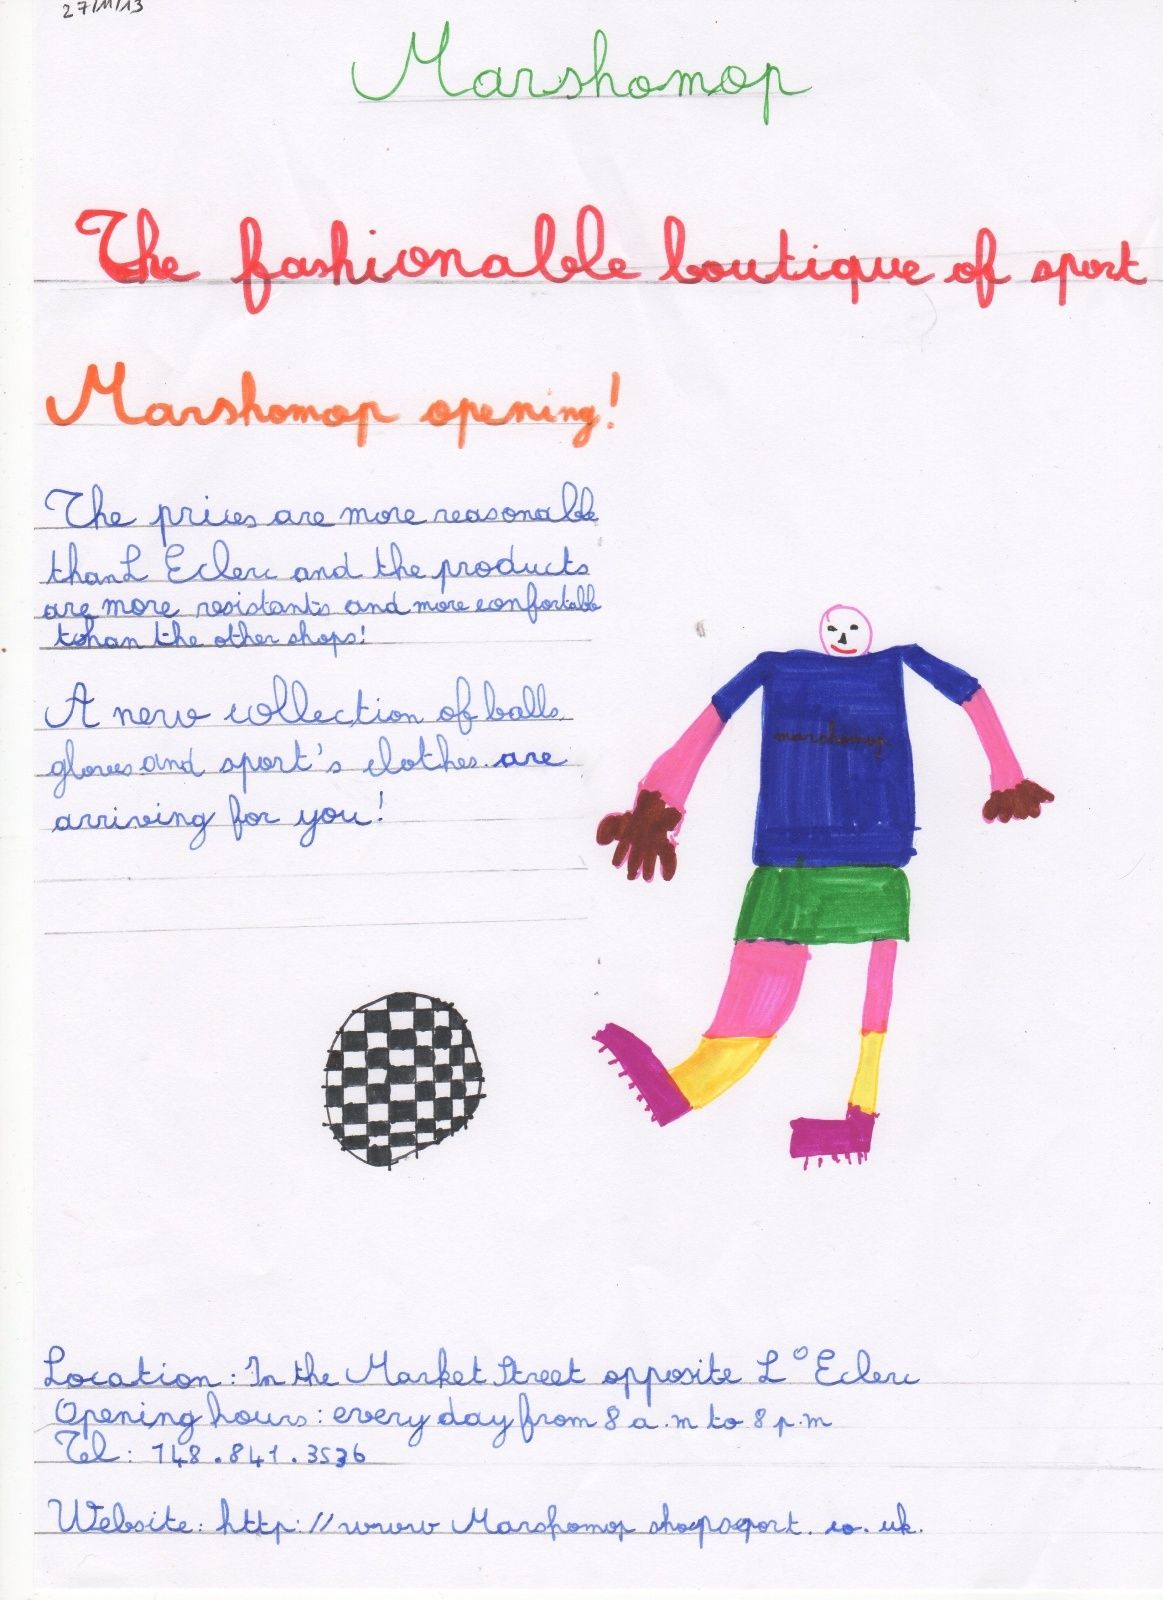 27/11/13
Marshomop
The fashionable boutique of sport
Marshomop opening!
The prices are more reasonable
than L Eclerc and the products
are more resistants and more confortable
than the other shops!
A new collection of balls,
gloves and sport's clothes are
arriving for you!
marshomop
Location: In the Market Street opposite L° Eclerc
Opening hours: every day from 8 a.m to 8 p.m
Tel: 148.841.3536
Website: http://www Marshomop shopsport.co.uk.